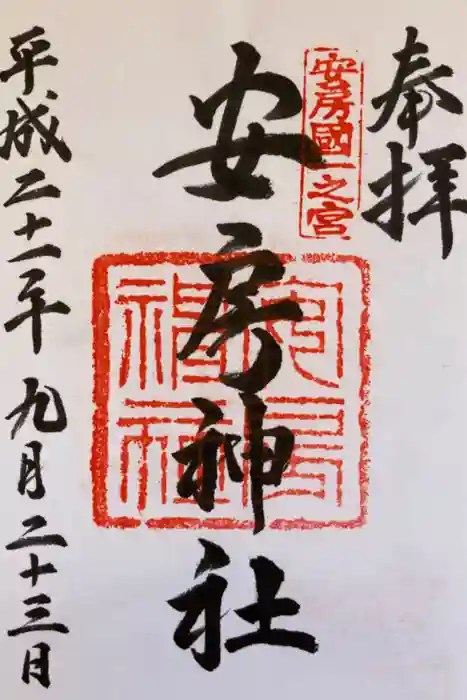 奉拝
安房國一之宮
安房神社
安房神社
平成二十一年九月二十三日